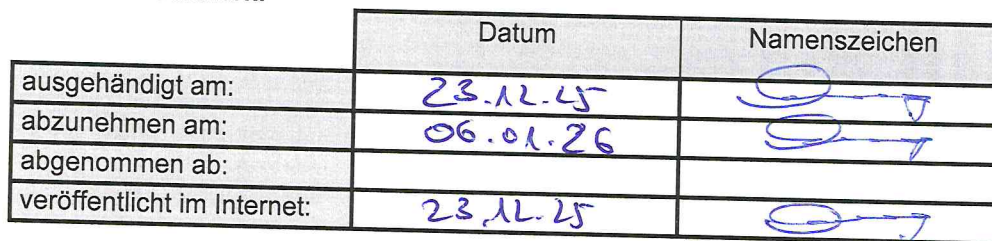 Datum Namenszeichen
ausgehändigt am: 23.12.25
abzunehmen am: 06.01.26
abgenommen ab:
veröffentlicht im Internet: 23.12.25